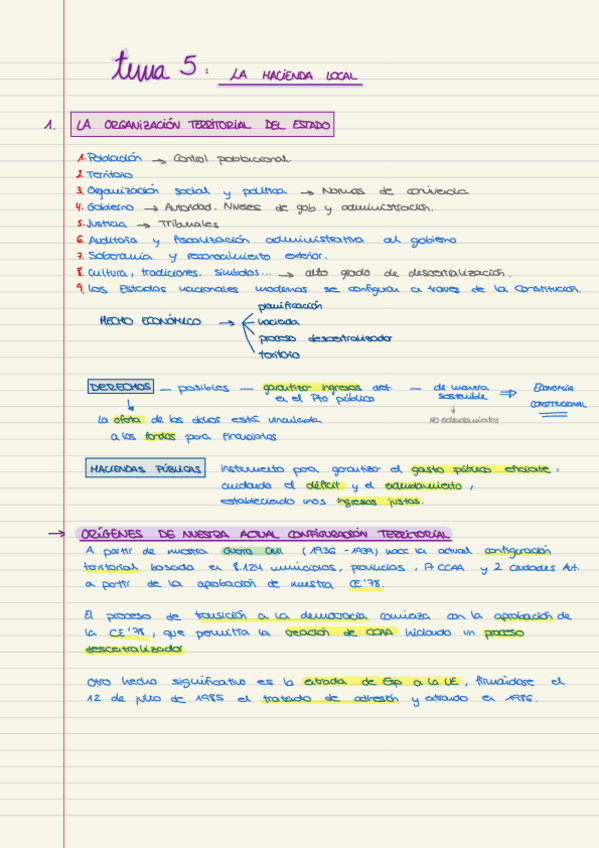 tema 5: LA HACIENDA LOCAL
1. LA ORGANIZACIÓN TERRITORIAL DEL ESTADO
1. Población → Control poblacional.
2. Territorio
3. Organización social y política → Normas de convivencia
4. Gobierno → Autoridad. Niveles de gob y administración.
5. Justicia → Tribunales
6. Auditoría y fiscalización administrativa al gobierno
7. Soberanía y reconocimiento exterior.
8. Cultura, tradiciones, símbolos... → alto grado de descentralización.
9. Los Estados nacionales modernos se configuran a traves de la Constitucion.
planificación
HECHO ECONÓMICO → hacienda
proceso descentralizador
territorio
DERECHOS — posibles — garantizar ingresos det. — de manera sostenible ⇒ ECONOMÍA CONSTITUCIONAL
en el Pto público
NO endeudamientos
la oferta de los dchos está vinculada
a los fondos para financiarlos
HACIENDAS PÚBLICAS instrumento para garantizar el gasto público eficiente,
cuidando el déficit y el endeudamiento,
estableciendo unos ingresos justos.
→ ORÍGENES DE NUESTRA ACTUAL CONFIGURACIÓN TERRITORIAL
A partir de nuestra Guerra Civil (1936-1939) nace la actual configuración
territorial basada en 8.124 municipios, provincias, 17 CCAA y 2 ciudades Aut.
a partir de la aprobación de nuestra CE'78.
El proceso de transición a la democracia comienza con la aprobación de
la CE'78, que permitía la creación de CCAA iniciando un proceso
descentralizador
Otro hecho significativo es la entrada de Esp a la UE, firmándose el
12 de julio de 1985 el tratado de adhesión y entrando en 1986.